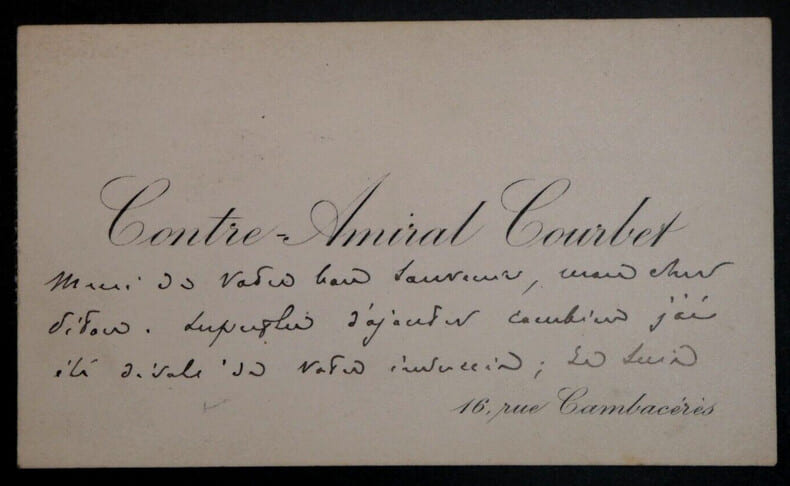 Contre-Amiral Courbet
Merci de votre bon souvenir, mon cher
. Superflu d'ajouter combien j'ai
été désolé de votre ; Je suis
16, rue Cambacérès